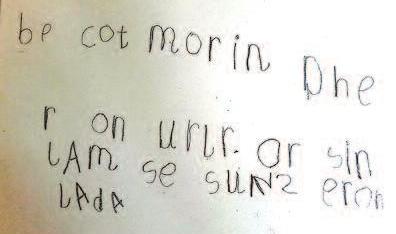 be cot morin Dhe
r on urlr. or sin
LAm se suN2 eron
LAdA